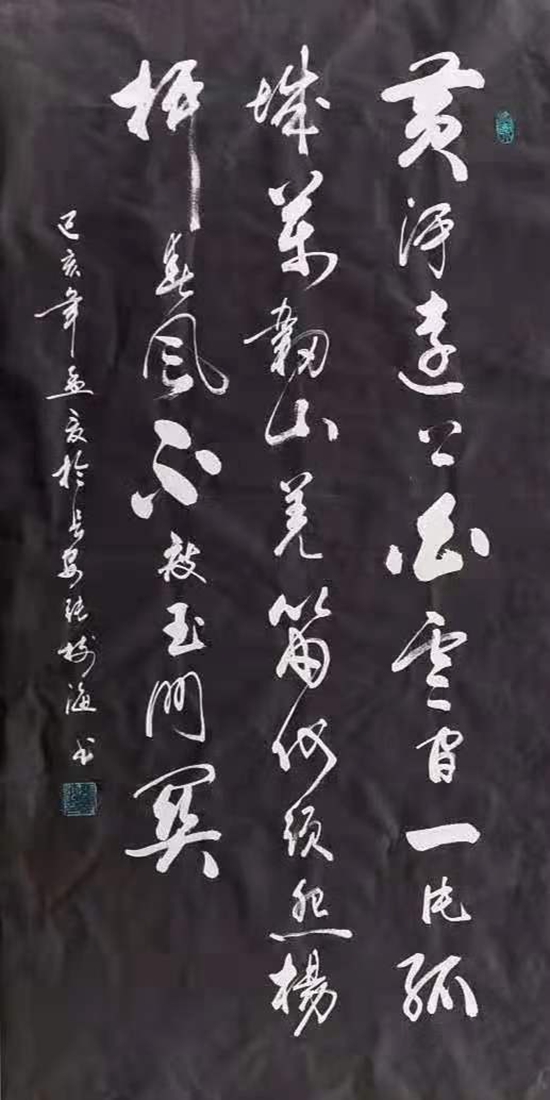 黄河远上白云间一片孤
城万韧山羌笛何须怨杨
柳春风不度玉门关
己亥年孟夏於长安张树海书